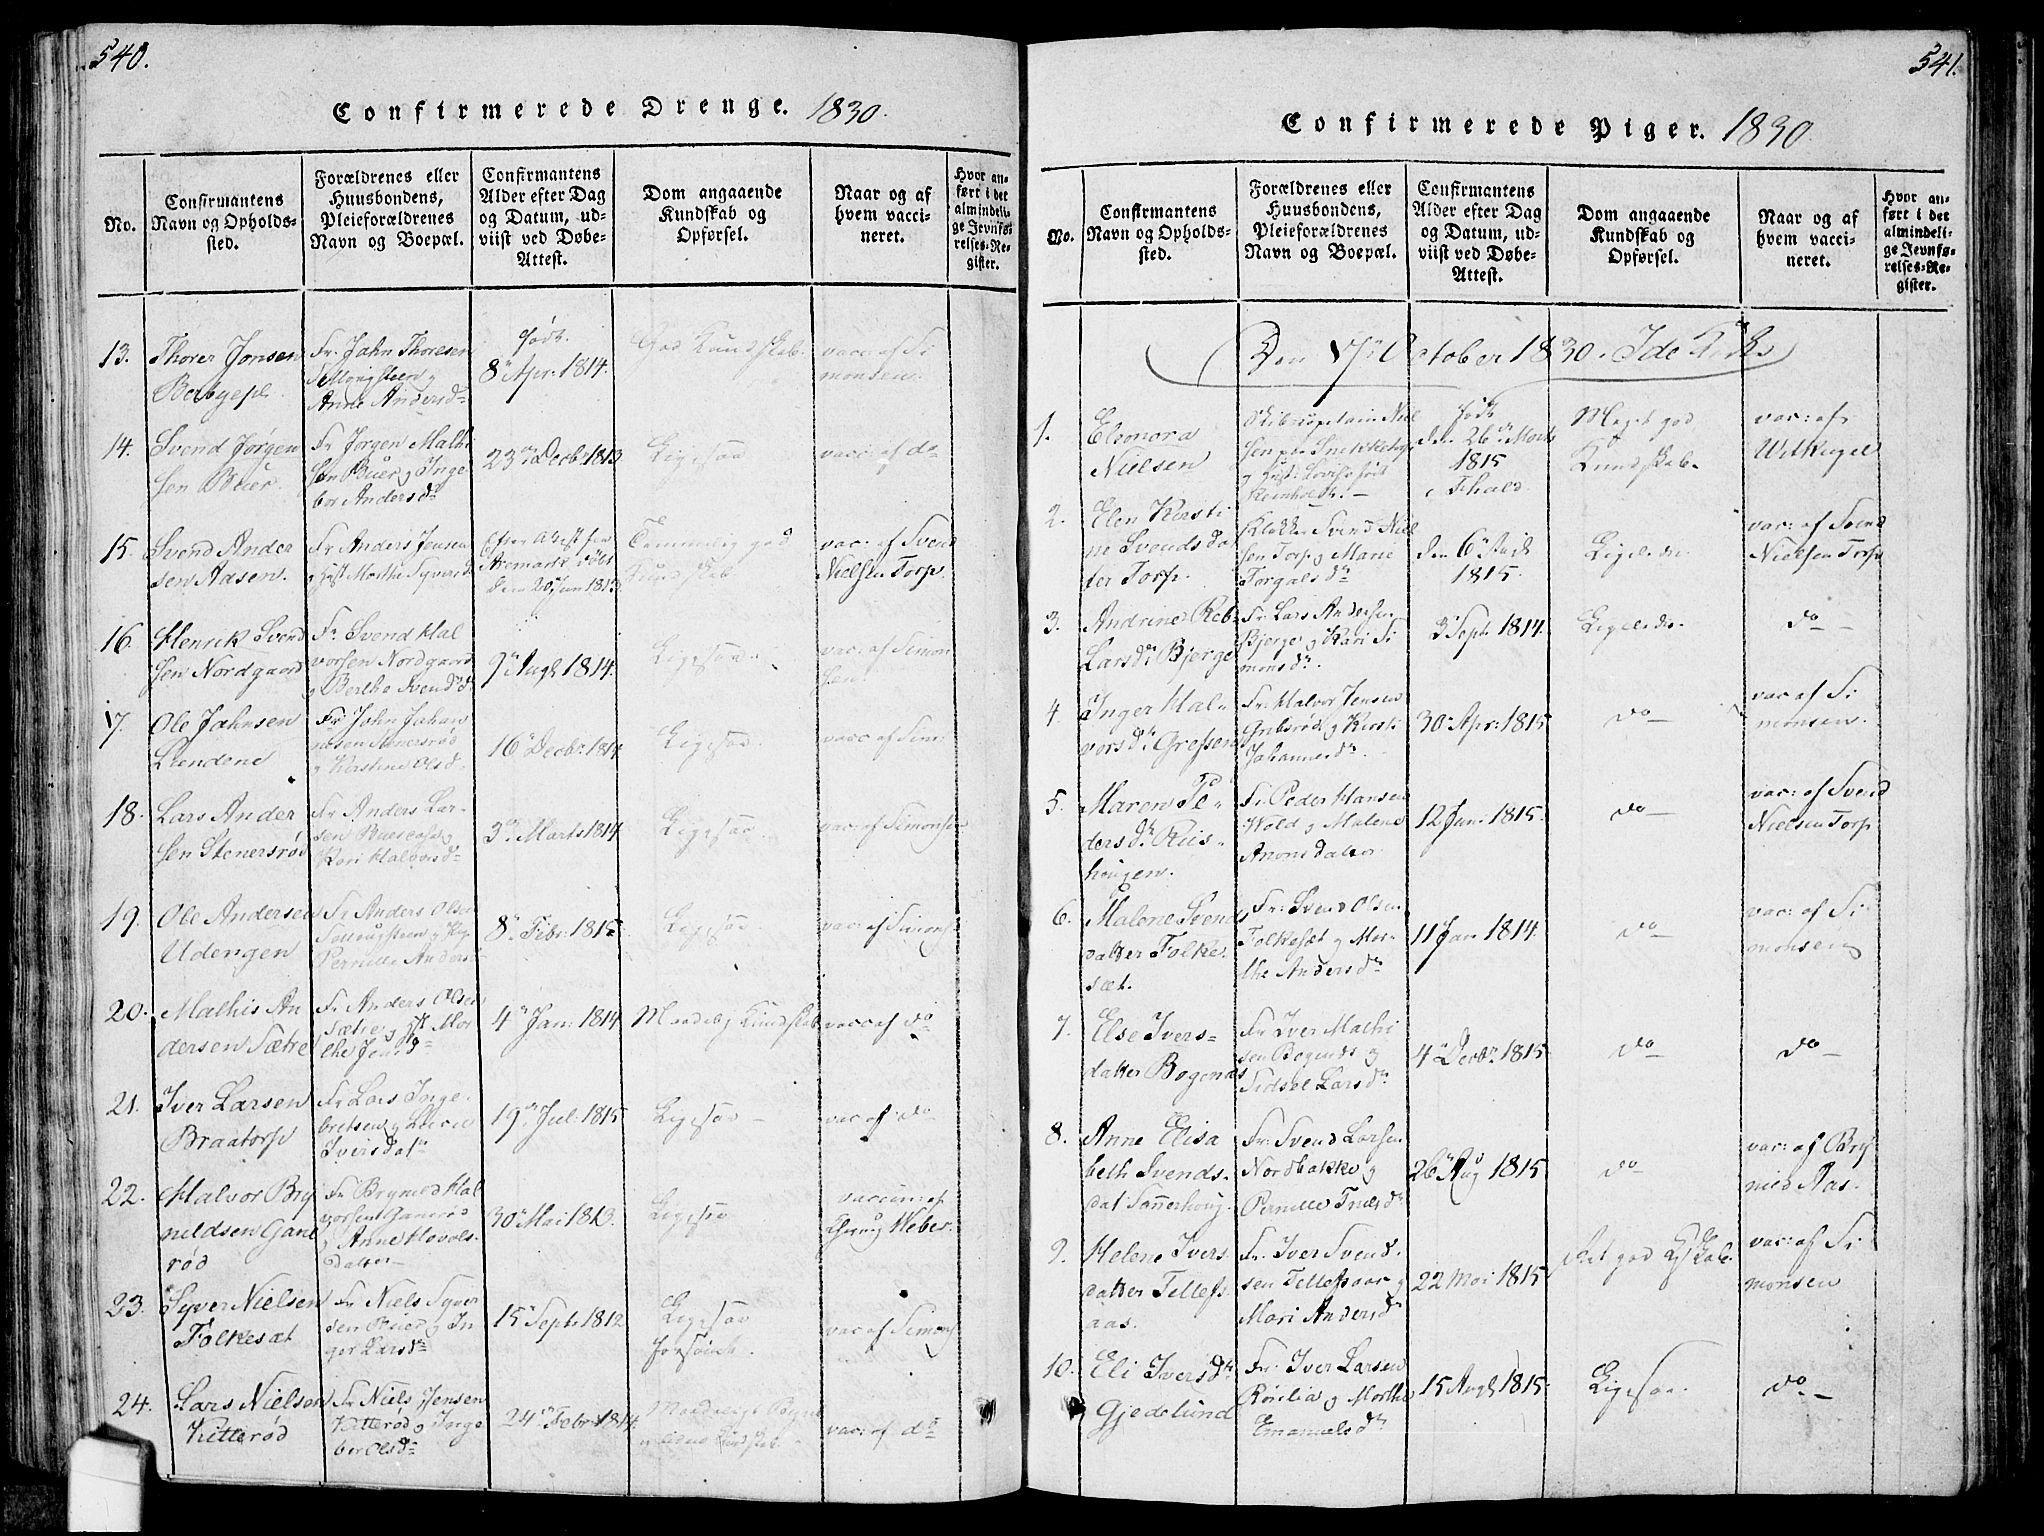 540.
Confirmerede Drenge. 1830.
No.
Confirmantens
Navn og Opholds-
sted.
Forældrenes eller
Huusbondens,
Pleieforældrenes
Navn og Boepæl.
Confirmantens
Alder efter Dag
og Datum, ud-
viist ved Døbe-
Attest.
Dom angaaende
Kundskab og
Opførsel.
Naar og af
hvem vacci-
neret.
Hvor an-
ført i det
almindeli-
ge Jevnfø-
relses-Re-
gister.
13.
Thorer Jonsen
Berbyepl.
Fr. John Thoresen
Anne Andersd
født
8 Apr: 1814.
God Kundskab.
vacc: af Si
monsen.
14.
Svend Jørgen
sen Buer.
Fr Jørgen Mathi
sen Buer og Inge
bor Andersd
23 Decbr 1813
Ligesaa
vacc: af do
15.
Svend Ander
sen Aasen.
Fr Anders Jensen
Aremark født
den 20 Juni 1813
Temmelig god
Kundskab
vac: af Svend
Nielsen Torp.
16.
Henrik Svend
sen Nordgaard
Fr. Svend Hal
vorsen Nordgaard
og Berthe Svendsd
9 Augt 1814.
Ligesaa
vac: af Simon
sen.
17.
Ole Johnsen
Lundene
Fr John Johan
nesen Stenersrød
og Kirstine Olsd
16 Decbr 1814
Ligesaa
vacc af Sim:
18.
Lars Ander
sen Stenersrød
Fr Anders Lar-
sen
Kari Halvorsd
3 Marts 1814
Ligesaa
vac: af Simonsen
19.
Ole Andersen
Udengen
Fr Anders Olsen
Pernille Anders
8 Febr: 1815
Ligesaa
vac: af Simons
20.
Mathis An
dersen Sætre
Fr Anders Olsen
Sætre og Mor
the Jensd
4 Jan: 1814
Maadelig Kundskab
vacc af do
21.
Iver Larsen
Braatorp
Fr Lars Inge-
bretsen og
Iversdatr
19 Jul: 1815
Ligesaa
vac af do
22.
Halvor Bry
nildsen Gane
rød
Fr Brynild Hal
vorsen Ganerød
og Anne
Datter
30 Mai 1813.
Ligesaa
vaccin: af
Weber.
23.
Syver Nielsen
Folkesæt
Fr Niels Syver
sen Buer og In
ger Larsd
15 Septr 1812
Ligesaa
vac af Simons
24.
Lars Nielsen
Kitterød
Fr Niels Jensen
Kitterød og Inge
bor Olsd
24 Febr 1814.
vac: af do
541.
Confirmerede Piger. 1830
No.
Confirmantens
Navn og Opholds-
sted.
Forældrenes eller
Huusbondens,
Pleieforældrenes
Navn og Boepæl.
Confirmantens
Alder efter Dag
og Datum, ud-
viist ved Døbe-
Attest.
Dom angaaende
Kundskab og
Opførsel.
Naar og af
hvem vacci-
neret.
Hvor an-
ført i det
almindeli-
ge Jevnfø-
relses-Re-
gister.
Den 17 October 1830. Ide Kirke
1.
Eleonora
Nielsen
født
den 26 Marts
1815
Meget god
Kundskab.
vac: af
2.
Elen Kirsti
ne Svendsdat
ter Torp.
Klokker Svend Niel
sen Torp og Marie
Torgalsd
den 6
1815.
Ligeledes
vac: af Svend
Nielsen Torp
3.
Andrine Reb:
Larsd Bjerge
Fr. Lars Andersen
Bjerge og Kari Si
monsd.
3 Sept 1814.
Ligeledes
do
4.
Inger Hal-
vorsd
Fr: Halvor Jensen
og Kirsti
Johannesd.
30 Apr: 1815
do
vac af Si
monsen.
5.
Maren Pe-
dersd Riis-
hougen.
Fr. Peder Hansen
Wold og Malene
Amonsdatter
12 Jun: 1815.
do
vac: af Svend
Nielsen Torp
6.
Malene Svends
datter Folke
sæt.
Fr: Svend Olsen
Folkesæt og Mar-
the Andersd
11 Jan 1814.
do
vac: af Si
monsen
7.
Else Ivers-
datter Bogenæs
Fr Iver Mathi
sen Bogenæs og
Sidsel Larsd
4 Decbr 1815
do
do
8.
Anne Elisa
beth Svends-
dat
Fr: Svend Larsen
Nordbakke og
Pernille
26 Aug 1815
do
vac: af Bry
nild Aas.
9.
Helene Ivers
datter Tellefs
aas.
Fr. Iver Svend
sen Tellefsaas og
Mari Andersd
22 Mai 1815
Ret god Kskab.
vac: af Si
monsen
10.
Eli Iversd
Gjedelund
Fr. Iver Larsen
og Marthe
Emanuelsd
15 Augt 1815.
Ligesaa.
do